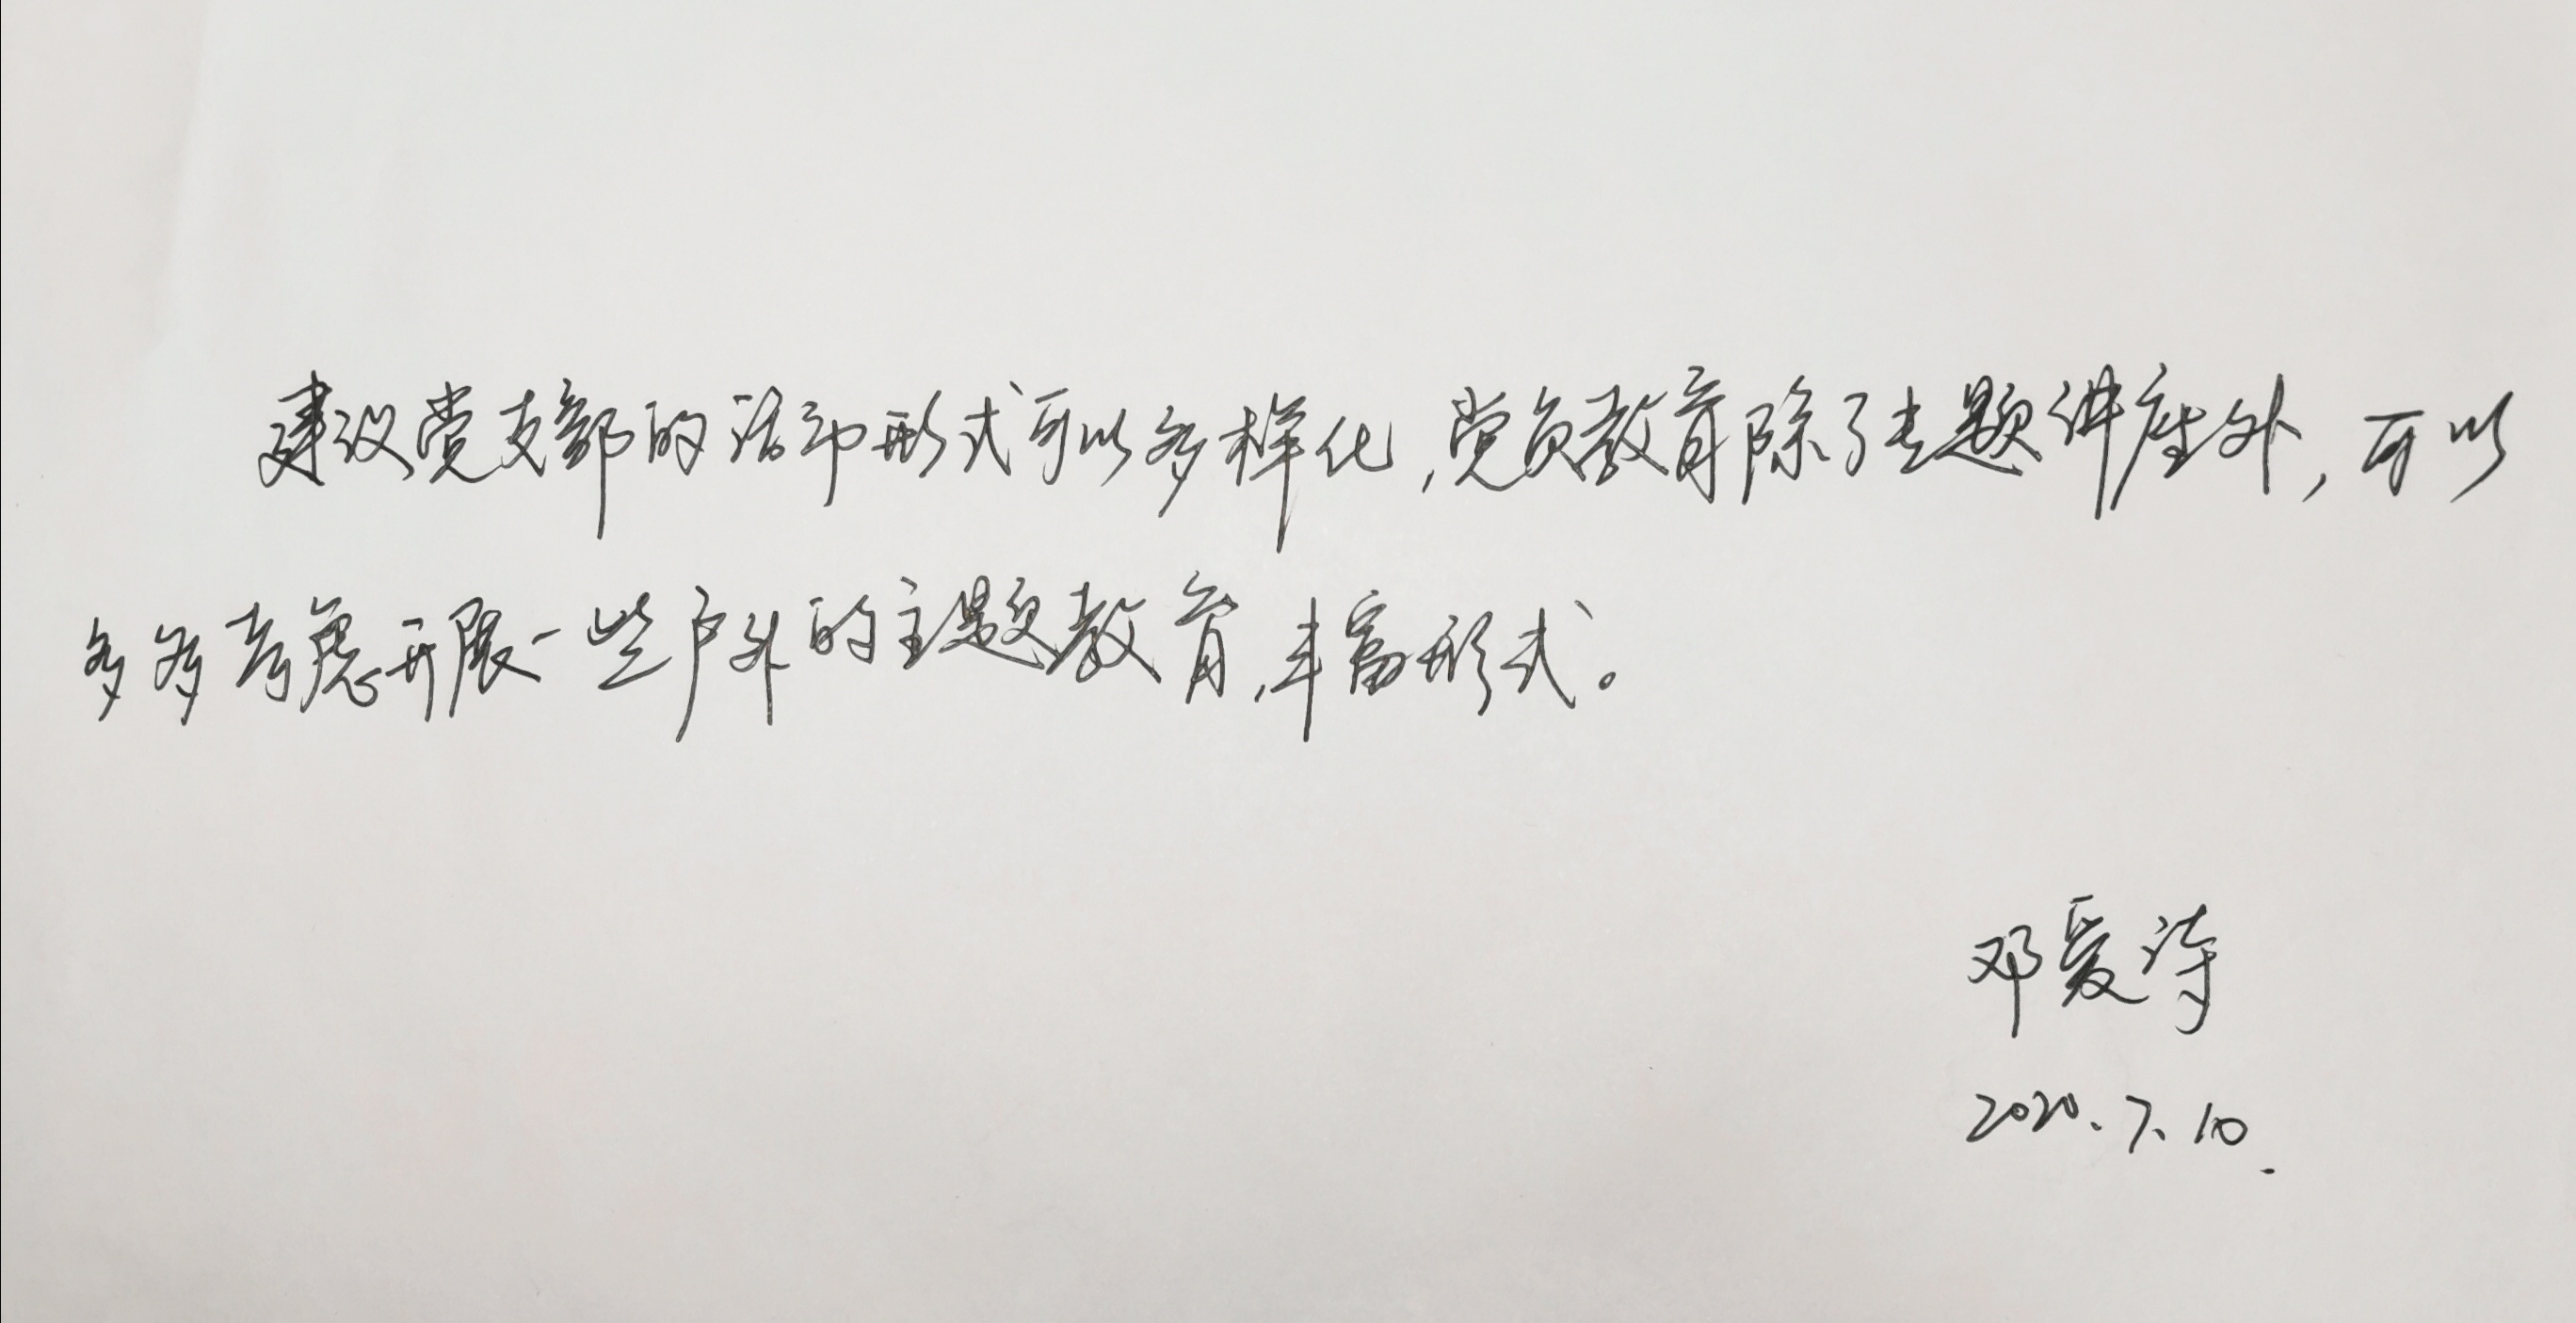 建议党支部的活动形式可以多样化,党员教育除了专题讲座外,可以
多多考虑开展一些户外的主题教育,丰富形式。
邓爱诗
2020.7.10.